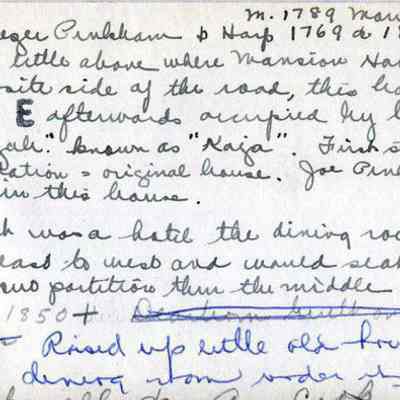 m. 1789 Mary
Pinkham b Harp 1769 d. 1
little above where Mansion Ho
site side of the road, this ho
E afterwards occupied by
zah." known as "Kaja". First s
iation = original house. Joe Pink
in this house.
was a hotel the dining roo
east to west and would seat
two partition thru the middle
1850 + Dearborn built on
Raised up little old hou
dining room under it